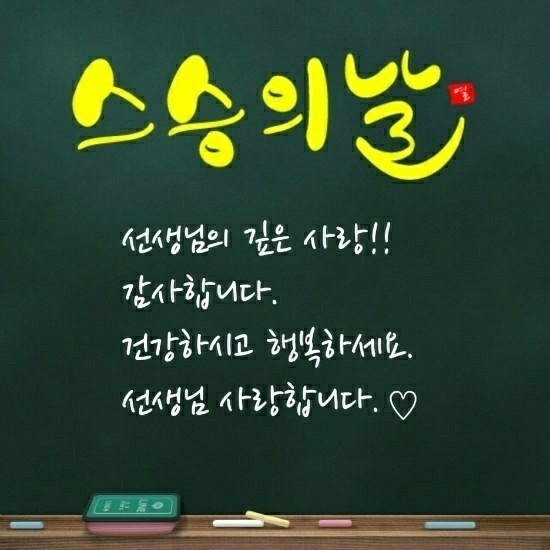 스승의날
열
선생님의 깊은 사랑!!
감사합니다.
건강하시고 행복하세요.
선생님 사랑합니다. ♡